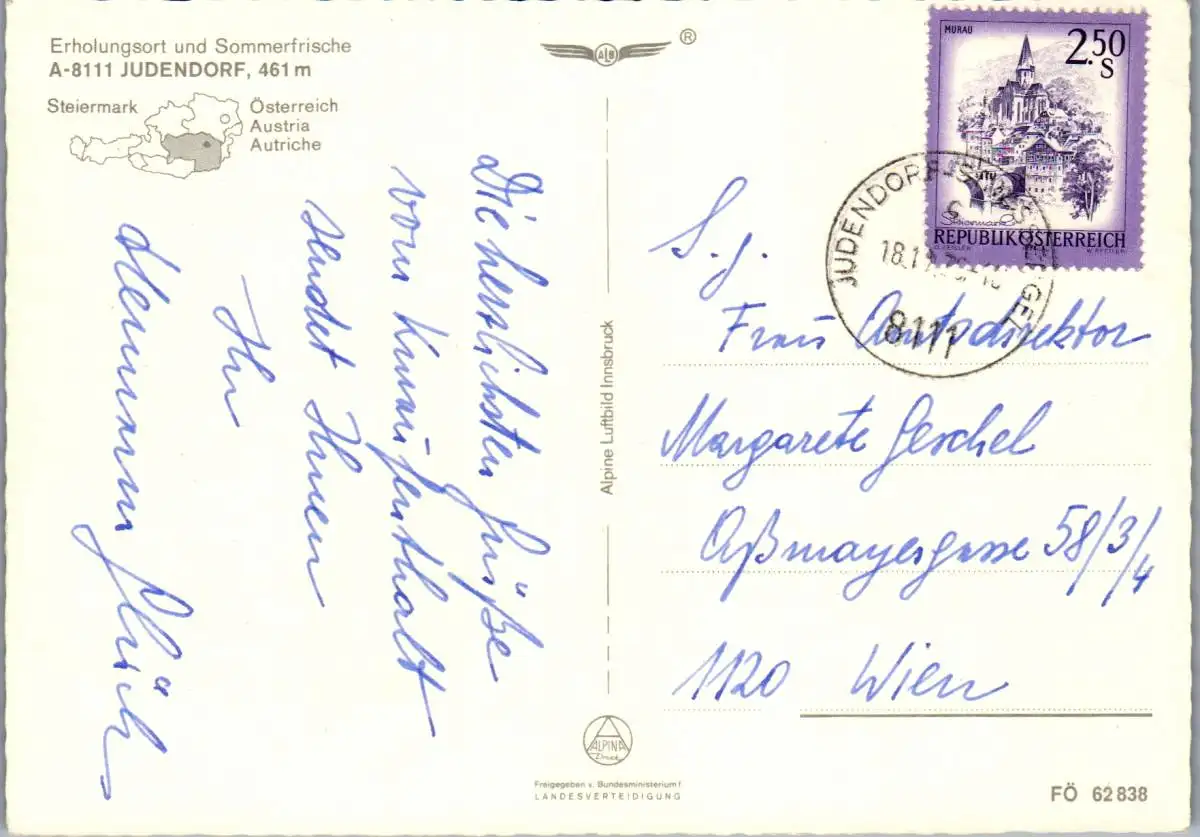 Erholungsort und Sommerfrische
A-8111 JUDENDORF, 461 m
Steiermark
Österreich
Austria
Autriche
ALB
®
MURAU
2.50
S
Steiermark
REPUBLIK ÖSTERREICH
JUDENDORF-STRASSENGEL
8111
Die herzlichsten Grüße
vom Kuraufenthalt
sendet Ihnen
Ihr
Hermann
S. g.
Frau Amtsdirektor
Margarete Geschel
Aßmayergasse 58/3/4
1120 Wien
Alpine Luftbild Innsbruck
ALPINA
Druck
Freigegeben v. Bundesministerium f.
LANDESVERTEIDIGUNG
FÖ 62 838